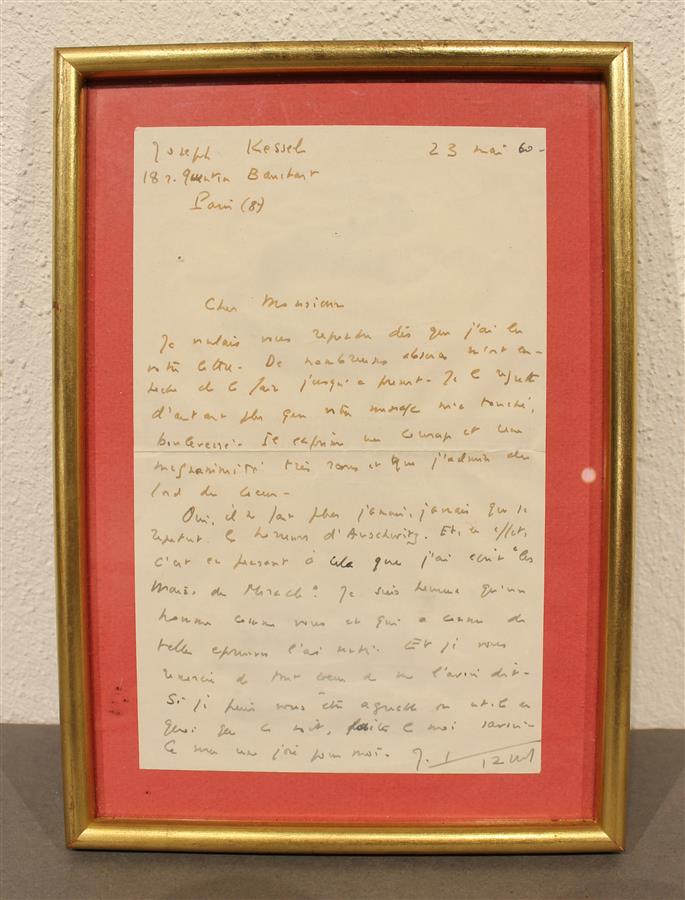 Joseph Kessel 23 mai 60-
18 r. Quentin Bauchart
Paris (8e)
Cher Monsieur
Je voulais vous répondre dès que j'ai lu
votre lettre. De nombreuses absences m'ont em-
pêché de le faire jusqu'à présent. Je le regrette
d'autant plus que votre message m'a touché,
bouleversé. Il exprime un courage et une
magnanimité très rares et que j'admire du
fond du cœur.
Oui, il ne faut plus jamais, jamais que se
répètent les horreurs d'Auschwitz. Et, en effet,
c'est en pensant à cela que j'ai écrit "les
Mains du Miracle". Je suis heureux qu'un
homme comme vous et qui a connu de
telles épreuves l'ait senti. Et je vous
remercie de tout cœur de me l'avoir dit.
Si je puis vous être agréable ou utile en
quoi que ce soit, faites le moi savoir.
Ce sera une joie pour moi. J. Kessel